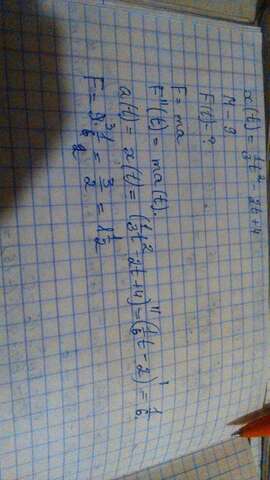 x(t) = 1/3 t² - 2t + 4
M - 9
F(t) - ?
F = ma
F''(t) = ma(t).
a(t) = x(t) = (1/3 t² - 2t + 4)'' = (1/6 t - 2)' = 1/6.
F = 9 · 1/6 = 3/2 = 1 1/2